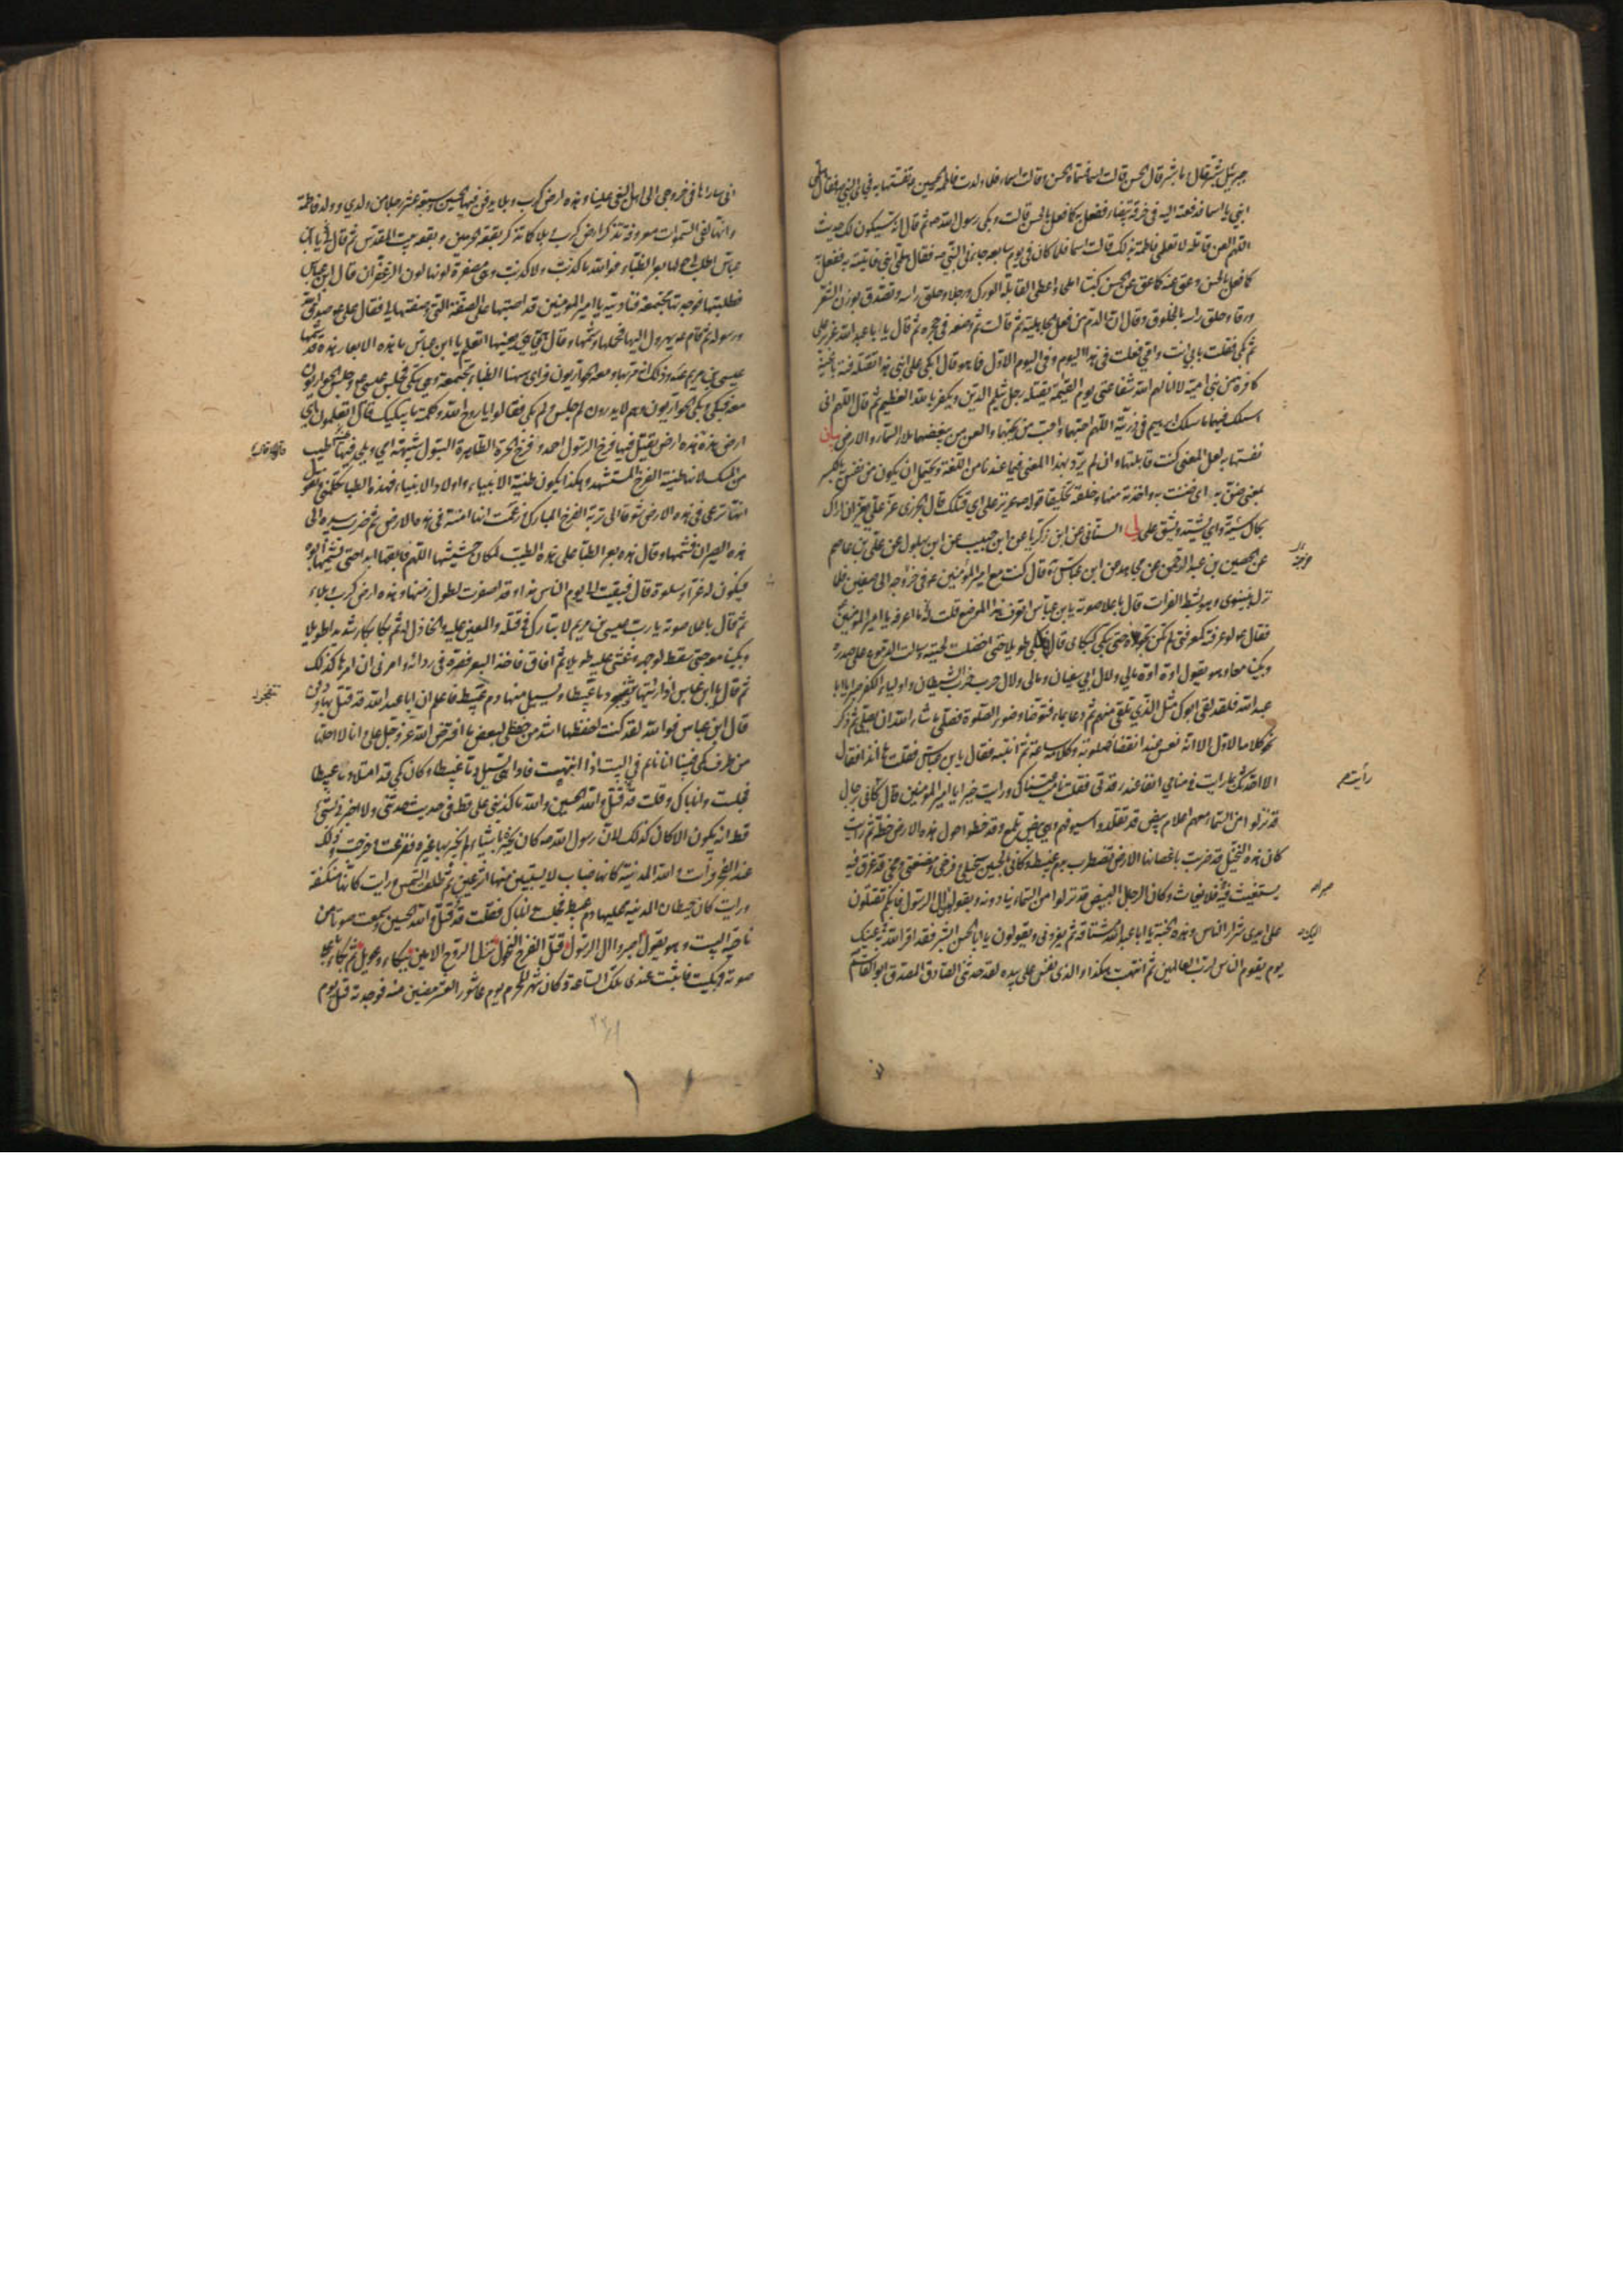 جبرئيل شبر قال ما شبر قال الحسن قالت اسما فسماه الحسن وقالت اسماء فلما ولدت فاطمة الحسين ع نفستها به فجاءنى النبي ص فقال هلمى
ابنى يا اسما فدفعته اليه فى خرقة بيضاء ففعل به كما فعل بالحسن قالت وبكى رسول الله ص ثم قال انه سيكون لك حديث
اللهم العن قاتله لا تعلمى فاطمة بذلك قالت اسما فلما كان فى يوم سابعه جاءنى النبى ص فقال هلمى ابنى فاتيته به ففعل به
كما فعل بالحسن وعق عنه كما عق عن الحسن كبشا املح واعطى القابلة الورك ورجلا وحلق راسه وتصدق بوزن الشعر
ورقا وخلق راسه بالخلوق وقال ان الدم من فعل الجاهلية قالت ثم وضعه فى حجره ثم قال يا ابا عبد الله عزيز على
ثم بكى فقلت بابى انت وامى فعلت فى هذا اليوم وفى اليوم الاول فما هو قال ابكى على ابنى هذا تقتله فئة باغية
كافرة من بنى امية لا انالهم الله شفاعتى يوم القيمة يقتله رجل يثلم الدين ويكفر بالله العظيم ثم قال اللهم انى
اسئلك فيهما ما سئلك ابرهيم فى ذريته اللهم احبهما واحب من يحبهما والعن من يبغضهما ملا السماء والارض بيان
نفستها به لعل المعنى كنت قابلتها وان لم يرد بهذا المعنى فيما عندنا من اللغة ويحتمل ان يكون من نفس به بالكسر
بمعنى ضن به اى ضننت به واخذته منها وخلفه تخليقا قوله ص عزيز على اى قتلك قال الجزرى عز على يعز ان اراك
بحال سيئة اى يشتد ويشق على لى السنانى عن ابن زكريا عن ابن حبيب عن ابن بهلول عن على بن عاصم
عن الحصين بن عبد الرحمن عن مجاهد عن ابن عباس قال كنت مع امير المؤمنين ع فى خروجه الى صفين فلما
نزل بنينوى وهو شط الفرات قال باعلا صوته يا بن عباس اتعرف هذا الموضع قلت له ما اعرفه يا امير المؤمنين
فقال ع لو عرفته كمعرفتى لم تكن تجوزه حتى تبكى كبكائى قال فبكى طويلا حتى اخضلت لحيته وسالت الدموع على صدره
وبكينا معا وهو يقول اوه اوه مالى ولال ابى سفيان ومالى ولال حرب حزب الشيطان واولياء الكفر صبرا يا ابا
عبد الله فلقد لقى ابوك مثل الذي تلقى منهم ثم دعا بماء فتوضا وضوء الصلوة فصلى ما شاء الله ان يصلى ثم ذكر
نحو كلامه الاول الا انه نعس عند انقضاء صلوته وكلامه ساعة ثم انتبه فقال يا بن عباس فقلت ها انا ذا فقال
الا احدثك بما رايت فى منامى انفا عند رقدتى فقلت نامت عيناك ورايت خيرا يا امير المؤمنين قال كانى برجال
قد نزلوا من السماء معهم اعلام بيض قد تقلدوا سيوفهم وهى بيض تلمع وقد خطوا حول هذه الارض خطة ثم رايت
كان هذه النخيل قد ضربت باغصانها الارض تضطرب بدم عبيط وكانى بالحسين سخيلى وفرخى ومضغتى ومخى قد غرق فيه
يستغيث فيه فلا يغاث وكان الرجال البيض قد نزلوا من السماء ينادونه ويقولون صبرا ال الرسول فانكم تقتلون
على ايدى شرار الناس وهذه الجنة يا ابا عبد الله مشتاقة ثم يعزونى ويقولون يا ابا الحسن ابشر فقد اقر الله به عينك
يوم يقوم الناس لرب العالمين ثم انتبهت هكذا والذى نفس على بيده لقد حدثنى الصادق المصدق ابو القاسم
رأيت
اليك
انى ساراها فى خروجى الى اهل البغى علينا وهذه ارض كرب وبلا يدفن فيها الحسين وسبعة عشر رجلا من ولدي وولد فاطمة
وانها لفى السموات معروفة تذكر ارض كرب وبلا كما تذكر بقعة الحرمين وبقعة بيت المقدس ثم قال يا بن
عباس اطلب لى حولها بعر الظباء فوالله ما كذبت ولا كذبت وهى مصفرة لونها لون الزعفران قال ابن عباس
فطلبتها فوجدتها مجتمعة فناديته يا امير المؤمنين قد اصبتها على الصفة التى وصفتها لى فقال على ع صدق الله
ورسوله ثم قام ع يهرول اليها فحملها وشمها وقال هى هى بعينها اتعلم يا ابن عباس ما هذه الابعار هذه قد شمها
عيسى بن مريم ع وذلك انه مر بها ومعه الحواريون فراى ههنا الظباء مجتمعة وهى تبكى فجلس عيسى ع وجلس الحواريون
معه فبكى وبكى الحواريون وهم لا يدرون لم جلس ولم بكى فقالوا يا روح الله وكلمته ما يبكيك قال اتعلمون اى
ارض هذه هذه ارض يقتل فيها فرخ الرسول احمد وفرخ الحرة الطاهرة البتول شبيهة امى ويلحد فيها اطيب
من المسك لانها طينة الفرخ المستشهد وهكذا يكون طينة الانبياء واولاد الانبياء فهذه الظباء تكلمنى وتقول
انها ترعى فى هذه الارض شوقا الى تربة الفرخ المبارك وزعمت انها امنة فى هذه الارض ثم ضرب بيده الى
هذه الصيران فشمها وقال هذه بعر الظباء على هذه الطيب لمكان حشيشها اللهم فابقها ابدا حتى يشمها ابوه
فيكون له عزاء وسلوة قال فبقيت الى يوم الناس هذا وقد اصفرت لطول زمنها وهذه ارض كرب وبلاء
ثم قال باعلا صوته يا رب عيسى بن مريم لا تبارك فى قتلته والمعين عليه والخاذل له ثم بكى بكاء شديدا طويلا
وبكينا معه حتى سقط لوجهه وغشى عليه طويلا ثم افاق فاخذ البعر فصره فى ردائه وامرنى ان اصرها كذلك
ثم قال يا ابن عباس اذا رايتها تنفجر دما عبيطا ويسيل منها دم عبيط فاعلم ان ابا عبد الله قد قتل بها ودفن
قال ابن عباس فوالله لقد كنت احفظها اشد من حفظى لبعض ما افترض الله عز وجل على وانا لا احلها
من طرف كمى فبينا انا نائم فى البيت اذا انتبهت فاذا هى تسيل دما عبيطا وكان كمى قد امتلا دما عبيطا
فجلست وانا باك وقلت قد قتل والله الحسين والله ما كذبنى على قط فى حديث حدثنى ولا اخبرنى بشئ
قط انه يكون الا كان كذلك لان رسول الله ص كان يخبره باشياء لا يخبر بها غيره ففزعت وخرجت وذلك
عند الفجر فرأيت والله المدينة كانها ضباب لا يستبين منها اثر عين ثم طلعت الشمس ورايت كانها منكسفة
ورايت كان حيطان المدينة عليها دم عبيط فجلست وانا باك فقلت قد قتل والله الحسين وسمعت صوتا من
ناحية البيت وهو يقول اصبروا ال الرسول قتل الفرخ النحول نزل الروح الامين ببكاء وعويل ثم بكى باعلا
صوته وبكيت فاثبت عندى تلك الساعة وكان شهر المحرم يوم عاشورا لعشر مضين منه فوجدته قتل يوم
تنفجر